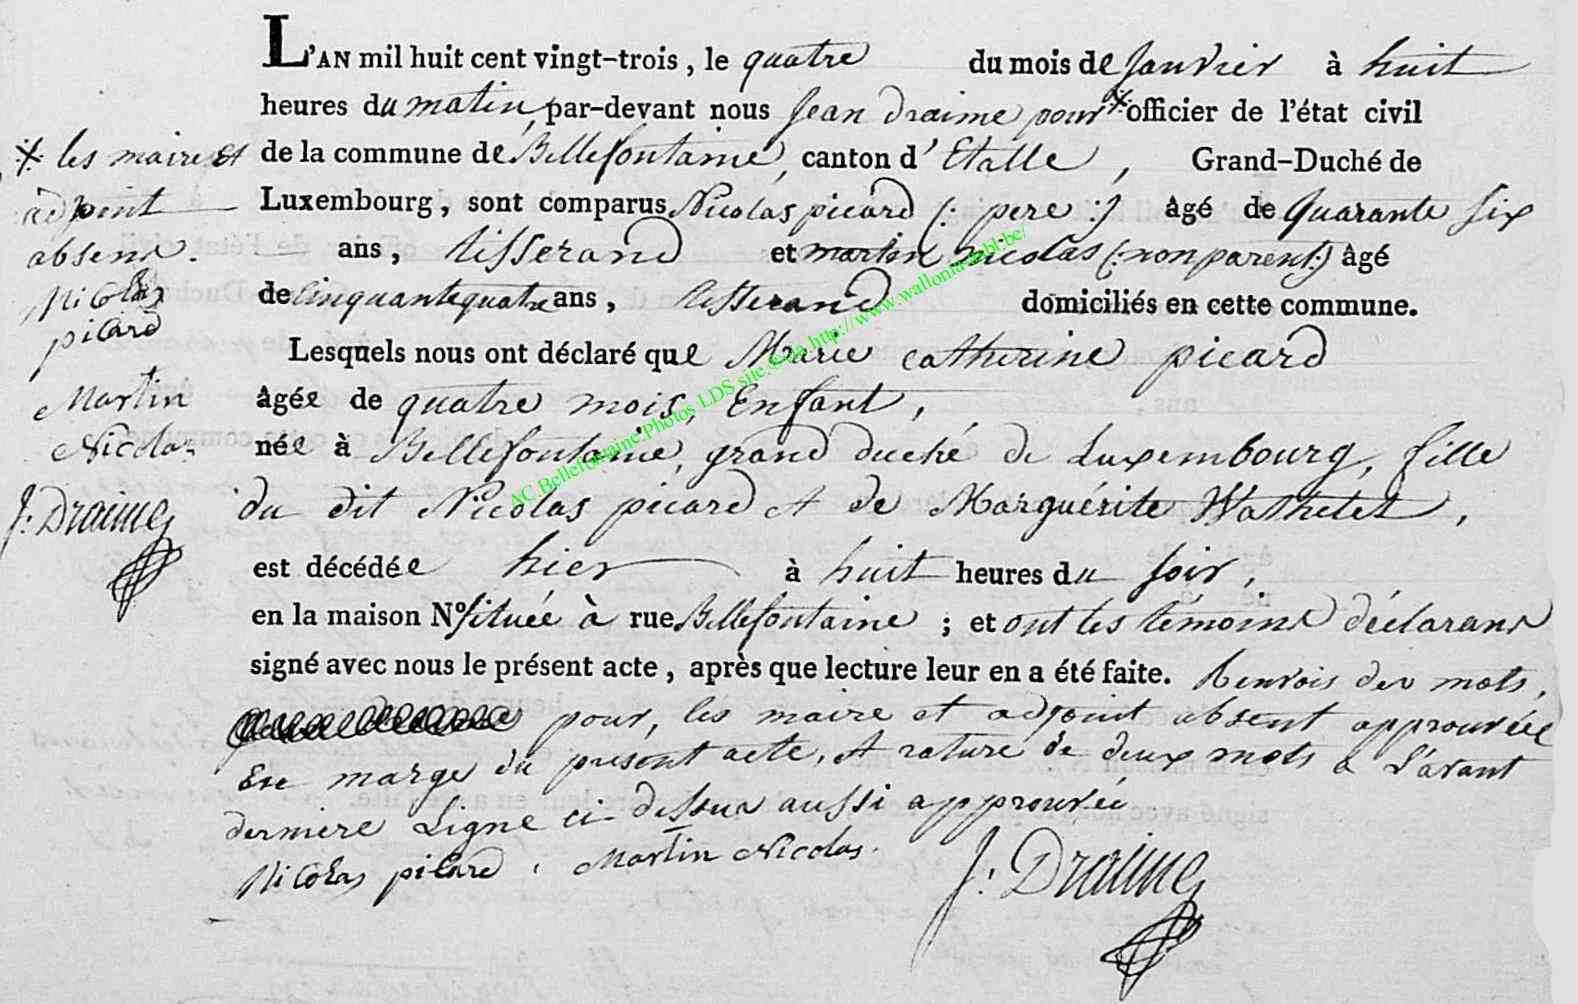 L'AN mil huit cent vingt-trois, le quatre du mois de Janvier à huit
heures du matin, par-devant nous Jean Draime pour * officier de l'état civil
de la commune de Bellefontaine, canton d' Etalle, Grand-Duché de
Luxembourg, sont comparus Nicolas picard (: pere :) âgé de Quarante six
ans, tisserand et martin Nicolas (: non parent :) âgé
de Cinquante quatre ans, tisserand domiciliés en cette commune.
Lesquels nous ont déclaré que Marie Catherine picard
âgée de quatre mois, Enfant,
née à Bellefontaine, grand duché de Luxembourg, fille
du dit Nicolas picard et de Marguérite Wathelet,
est décédée hier à huit heures du soir,
en la maison N° située à rue Bellefontaine ; et ont les témoins déclarans
signé avec nous le présent acte, après que lecture leur en a été faite. Renvois des mots,
pour, les maire et adjoint absent approuvée
En marge du présent acte, et rature de deux mots a L'avant
derniere Ligne ci-dessus aussi approuvée
Nicolas picard, Martin Nicolas. J: Draime
* les maire et
adjoint
absens.
Nicolas
picard
Martin
Nicolas
J: Draime
AC.Bellefontaine.Photos LDS site @ http://www.wallonia-asbl.be/